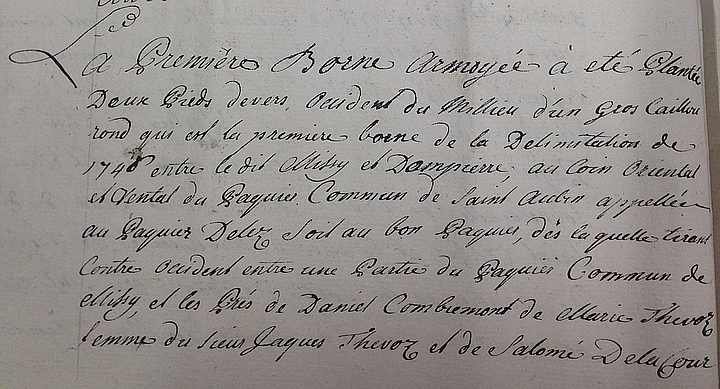 La Première Borne armoyée à eté Plantée
Deux Pieds devers, Ocident du Millieu d'un Gros Caillou
rond qui est la première borne de la Delimitation de
1748 entre ledit Missy et Dompierre, au Coin Oriental
et Vental du Paquier Commun de Saint Aubin appellée
au Paquier Delez soit au bon Paquier, dès laquelle tirant
Contre Ocident entre une Partie du Paquier Commun de
Missy, et les Prés de Daniel Combremont de Marie Thevoz
femme du sieur Jaques Thevoz et de Salomé Delacour